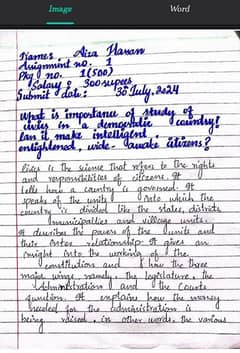 Image Word
Names: Aiza Hassan
Assignment no. 1
Pkg no. 1(500)
Salary: 300 rupees
Submit date: 30 July, 2024
What is importance of study of
civics in a democratic country?
Can it make intelligent,
enlightened, wide-awake citizens?
Civics is the science that refers to the rights
and responsibilities of citizens. It
tells how a country is governed. It
speaks of the units into which the
country is divided like the states, districts
municipalities and village units.
It describes the powers of the units and
their inter relationship. It gives an
insight into the working of the
constitution and how the three
major wings namely, the legislature, the
Administration and the Courts
function. It explains how the money
needed for the administration is
being raised. In other words, the various